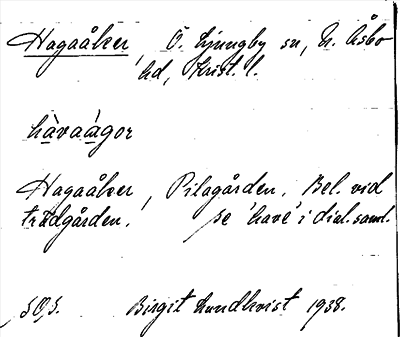 Hagaåker, Ö. Ljungby sn, N. Åsbo
hd, Krist. l.
hàvaágor
Hagaåker, Pilagården. Bel. vid
trädgården. se 'have' i dial. saml.
SOS. Birgit Lundkvist 1938.